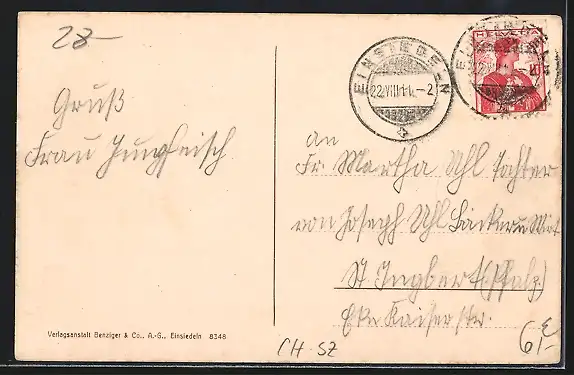 28-
HELVETIA
EINSIEDELN
22.VIII.11.-2
Gruß
Frau Jungfleisch
an
Fr. Martha Uhl Tochter
von Joseph Uhl Bäcker u Wirt
St. Ingbert (Pfalz)
Eke Kaiserstr.
Verlagsanstalt Benziger & Co., A.-G., Einsiedeln 8348
CH-SZ
6,-E